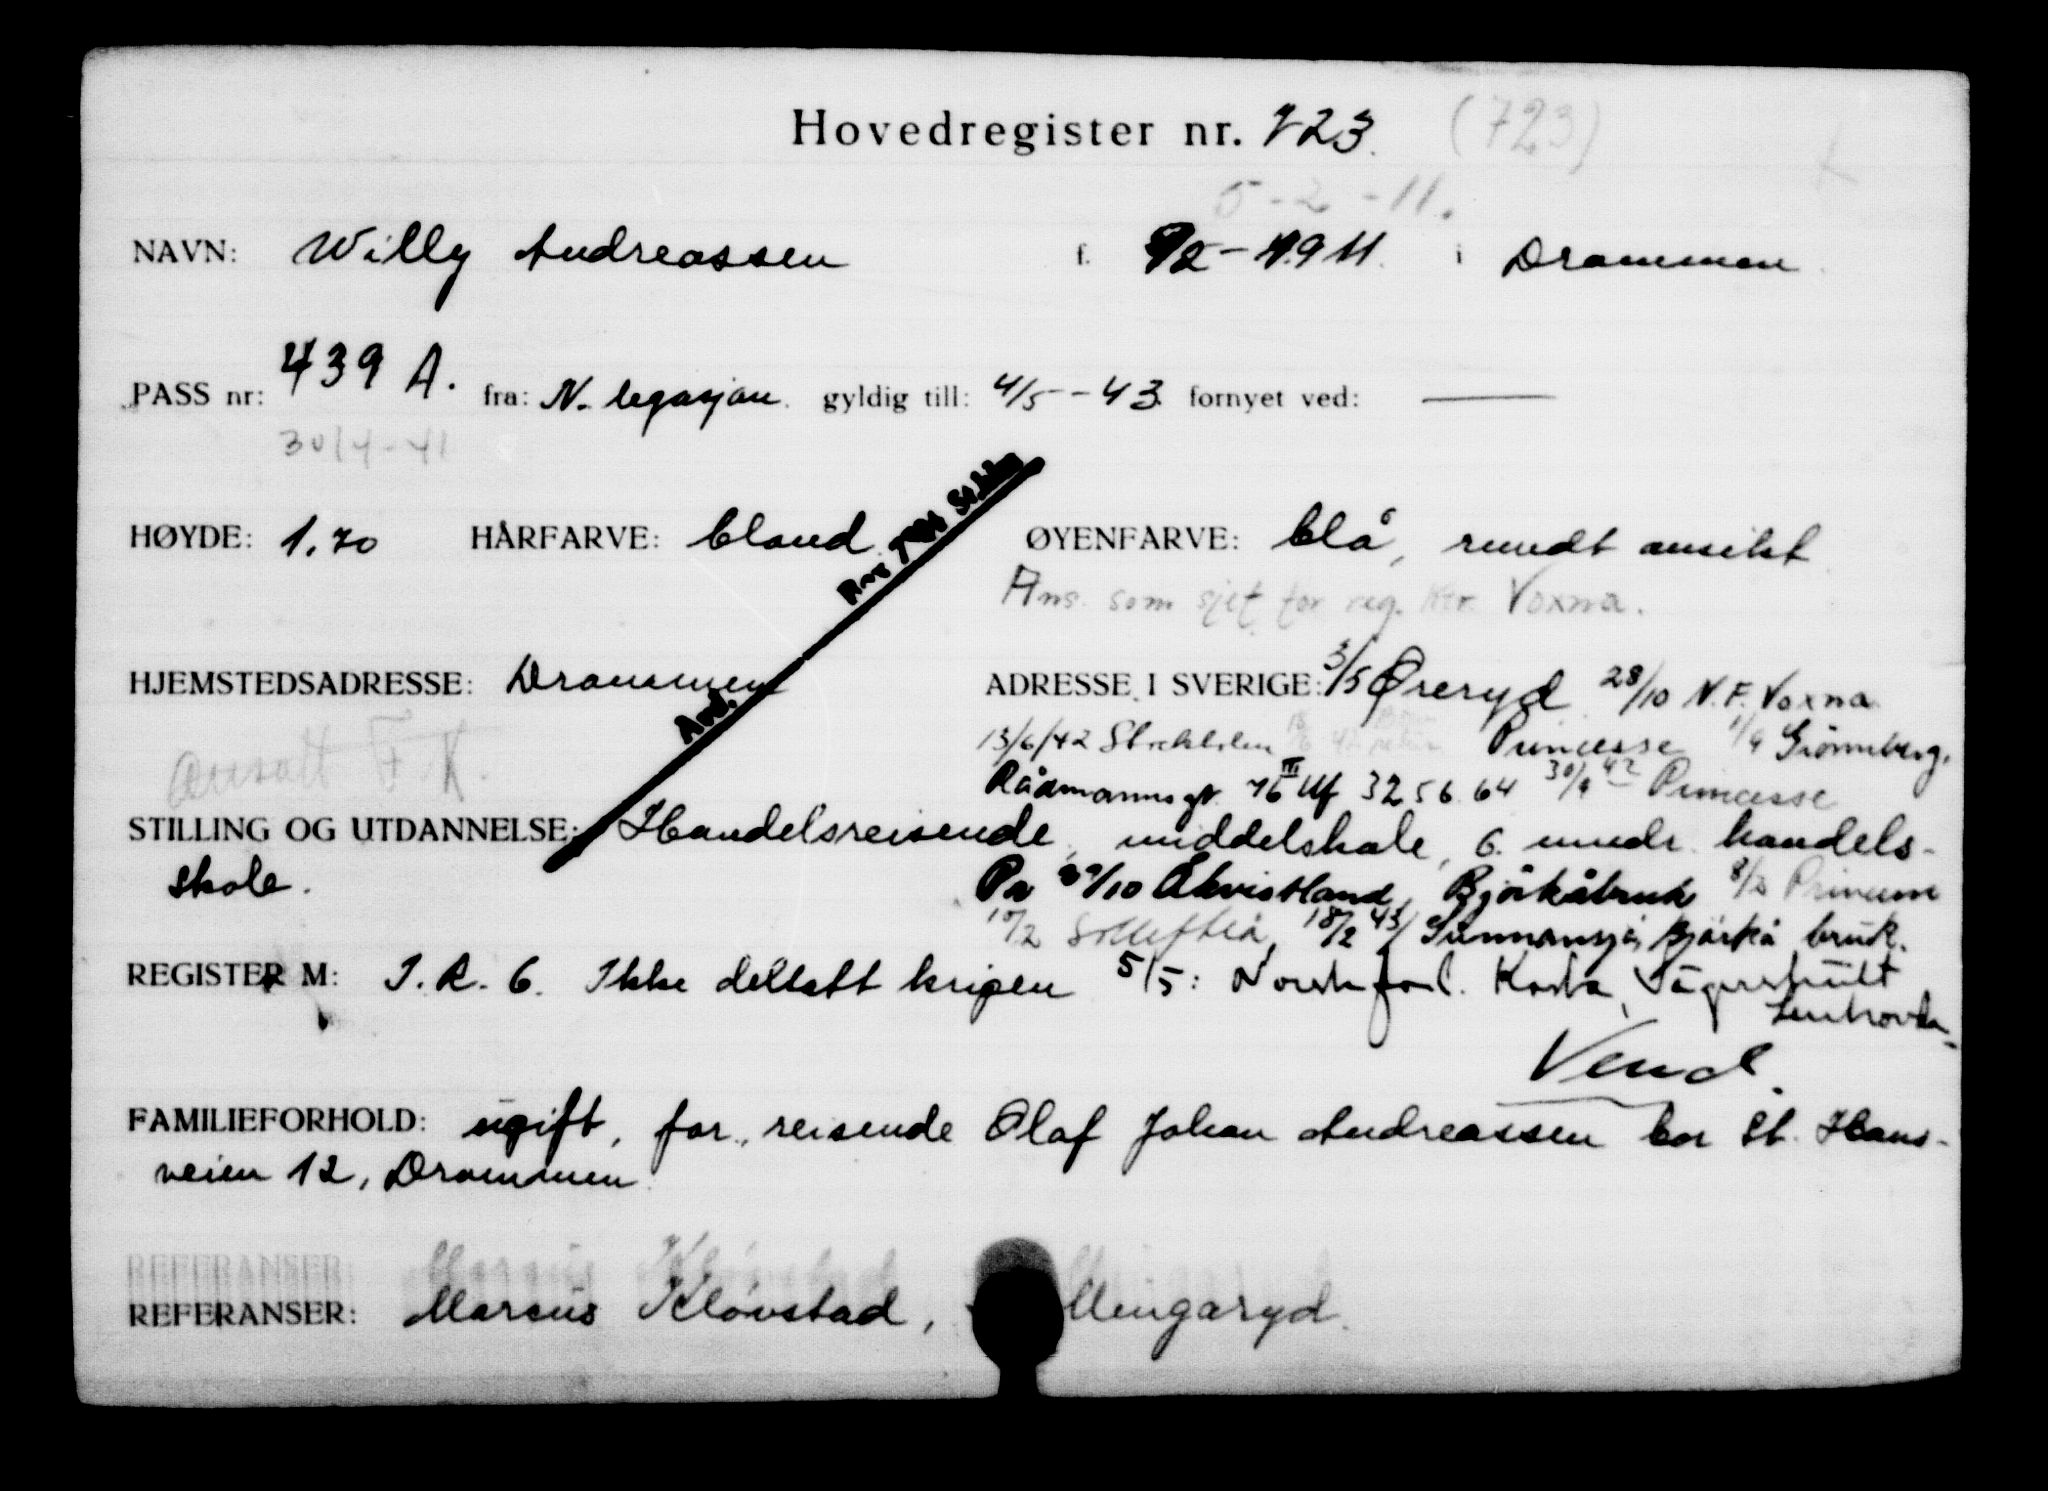 Hovedregister nr. 723. (723)
5-2-11.
NAVN: Willy Andreassen f. 5/2-1911. i Drammen.
PASS nr: 439 A. fra: N. legasjon. gyldig till: 4/5-43. fornyet ved: —
30/4-41
HØYDE: 1.70 HÅRFARVE: blond. ØYENFARVE: blå, rundt ansikt
Ans. som sjef for reg. ktr. Voxna.
HJEMSTEDSADRESSE: Drammen ADRESSE I SVERIGE: 3/5 Øreryd 28/10 N.F. Voxna
13/6/42 Stockholm Princesse 1/9 Grönneberg.
Ansatt F.K. Rådmannsgt. 76 III Uf 32 56 64 30/9 42 Princesse
STILLING OG UTDANNELSE: Handelsreisende, middelskole, 6 mndr. handels-
skole. Pr 29/10 Bjørkåbruk 8/2
10/2 Sollefteå, 18/2 43 Sunnansjö, Bjørkå bruk.
REGISTER M: I.R. 6. Ikke deltatt krigen 5/5: Norsk forl. Kosta, Vägershult
Lenhovda
Vend.
FAMILIEFORHOLD: ugift, far, reisende Olaf Johan Andreassen bor St. Hans-
veien 12, Drammen.
REFERANSER: Marcus Kløvstad,